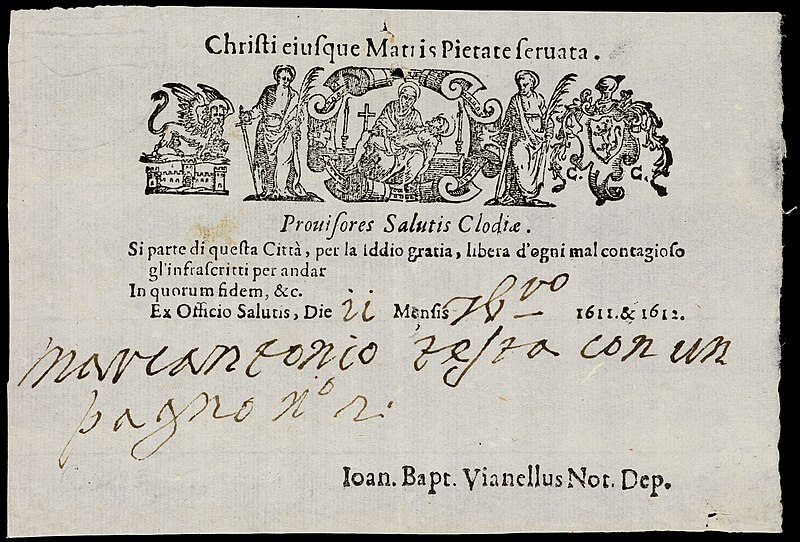 Christi eiuſque Matris Pietate ſeruata.
C. C.
Prouiſores Salutis Clodiæ.
Si parte di queſta Città, per la Iddio gratia, libera d'ogni mal contagioſo
gl'infraſcritti per andar
In quorum fidem, &c.
Ex Officio Salutis, Die ii Menſis 7bro 1611. & 1612.
marcantonio teſta con un
pagno nº 2.
Ioan. Bapt. Vianellus Not. Dep.